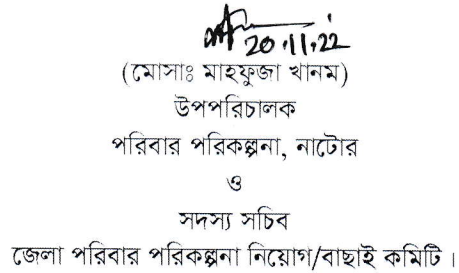 20.11.22
(মোসাঃ মাহফুজা খানম)
উপপরিচালক
পরিবার পরিকল্পনা, নাটোর
ও
সদস্য সচিব
জেলা পরিবার পরিকল্পনা নিয়োগ/বাছাই কমিটি।